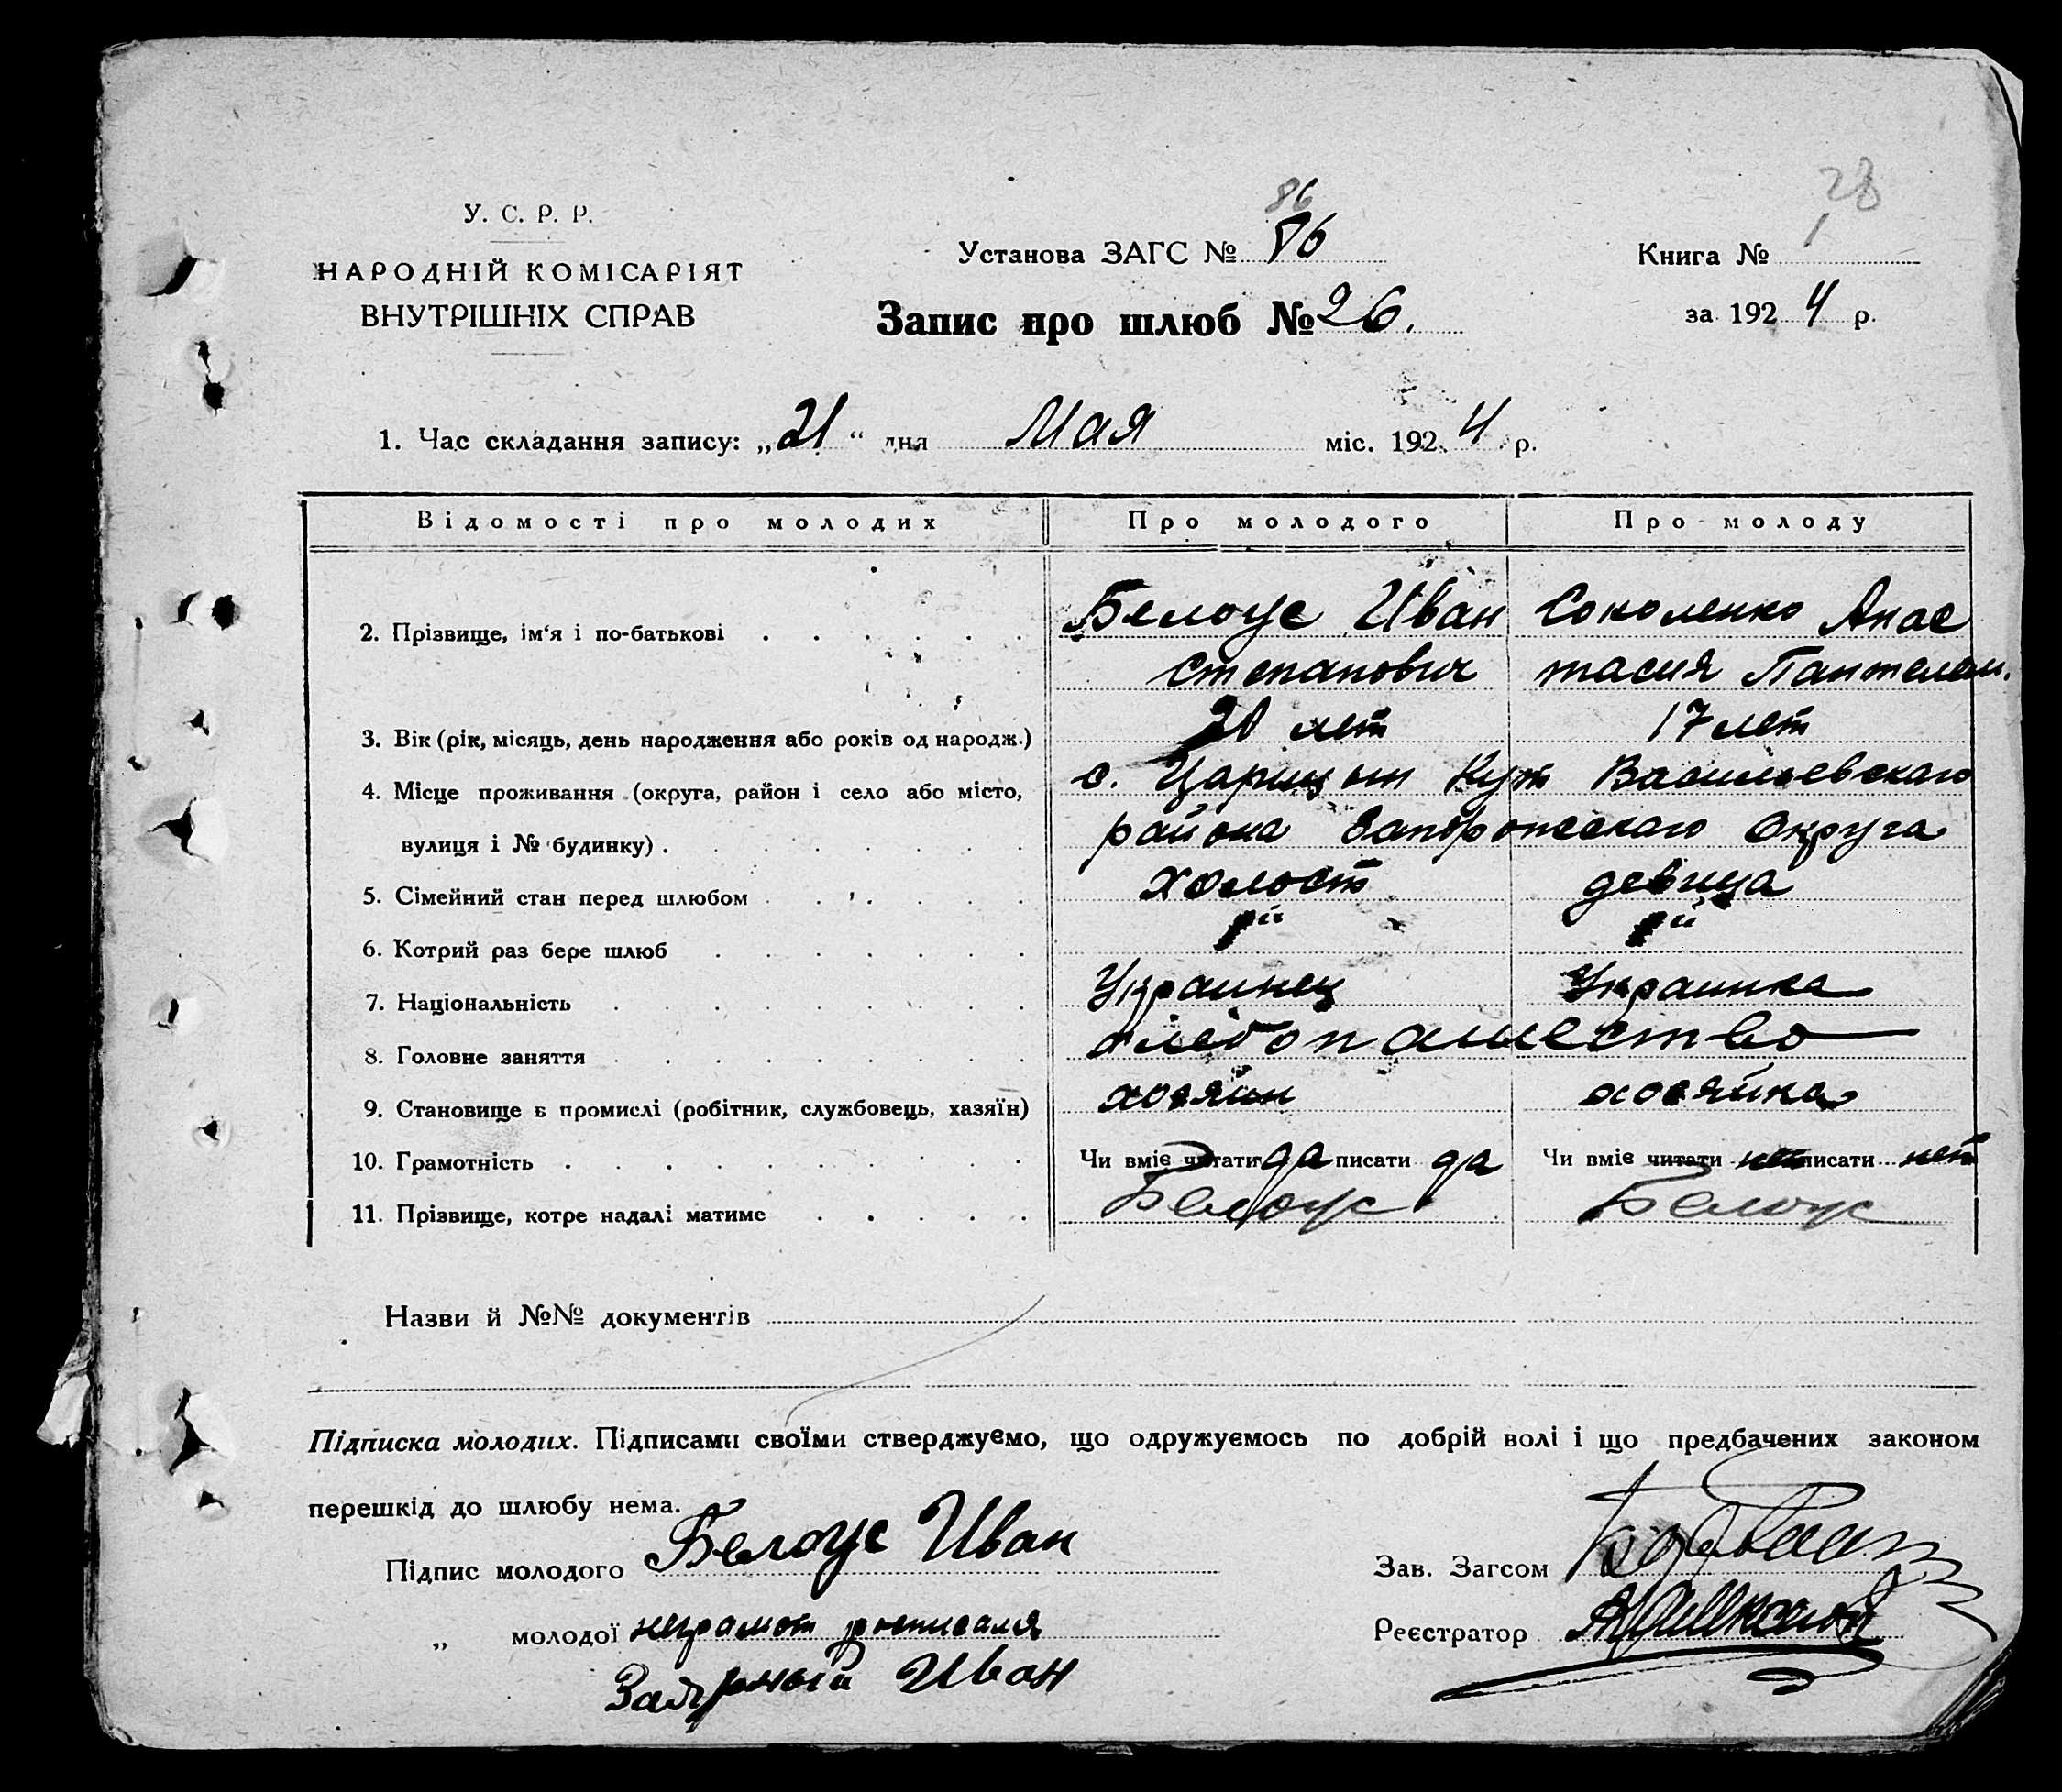 28
У. С. Р. Р.
НАРОДНІЙ КОМІСАРІЯТ
ВНУТРІШНІХ СПРАВ
86
Установа ЗАГС № 86
Запис про шлюб № 26.
Книга № 1
за 1924 р.
1. Час складання запису: „21“ дня Мая міс. 1924 р.
Відомості про молодих Про молодого Про молоду
2. Прізвище, ім‘я і по-батькові Белоус Иван Соколенко Анас
Степанович тасия Пантелеи.
3. Вік (рік, місяць, день народження або років од народж.) лет 17 лет
4. Місце проживання (округа, район і село або місто, с. Царицын Кут Васильевского
вулиця і № будинку) района Запорожского Округа
5. Сімейний стан перед шлюбом холост девица
6. Котрий раз бере шлюб
7. Національність Украинец Украинка
8. Головне заняття хлебопашество
9. Становище в промислі (робітник, службовець, хазяїн) хозяин хозяйка
10. Грамотність Чи вміє читати да писати да Чи вміє читати нет писати нет
11. Прізвище, котре надалі матиме Белоус Белоус
Назви й №№ документів
Підписка молодих. Підписами своїми стверджуємо, що одружуємось по добрій волі і що предбачених законом
перешкід до шлюбу нема.
Підпис молодого Белоус Иван
Зав. Загсом
„ молодої неграмот росписался
Реєстратор
Иван